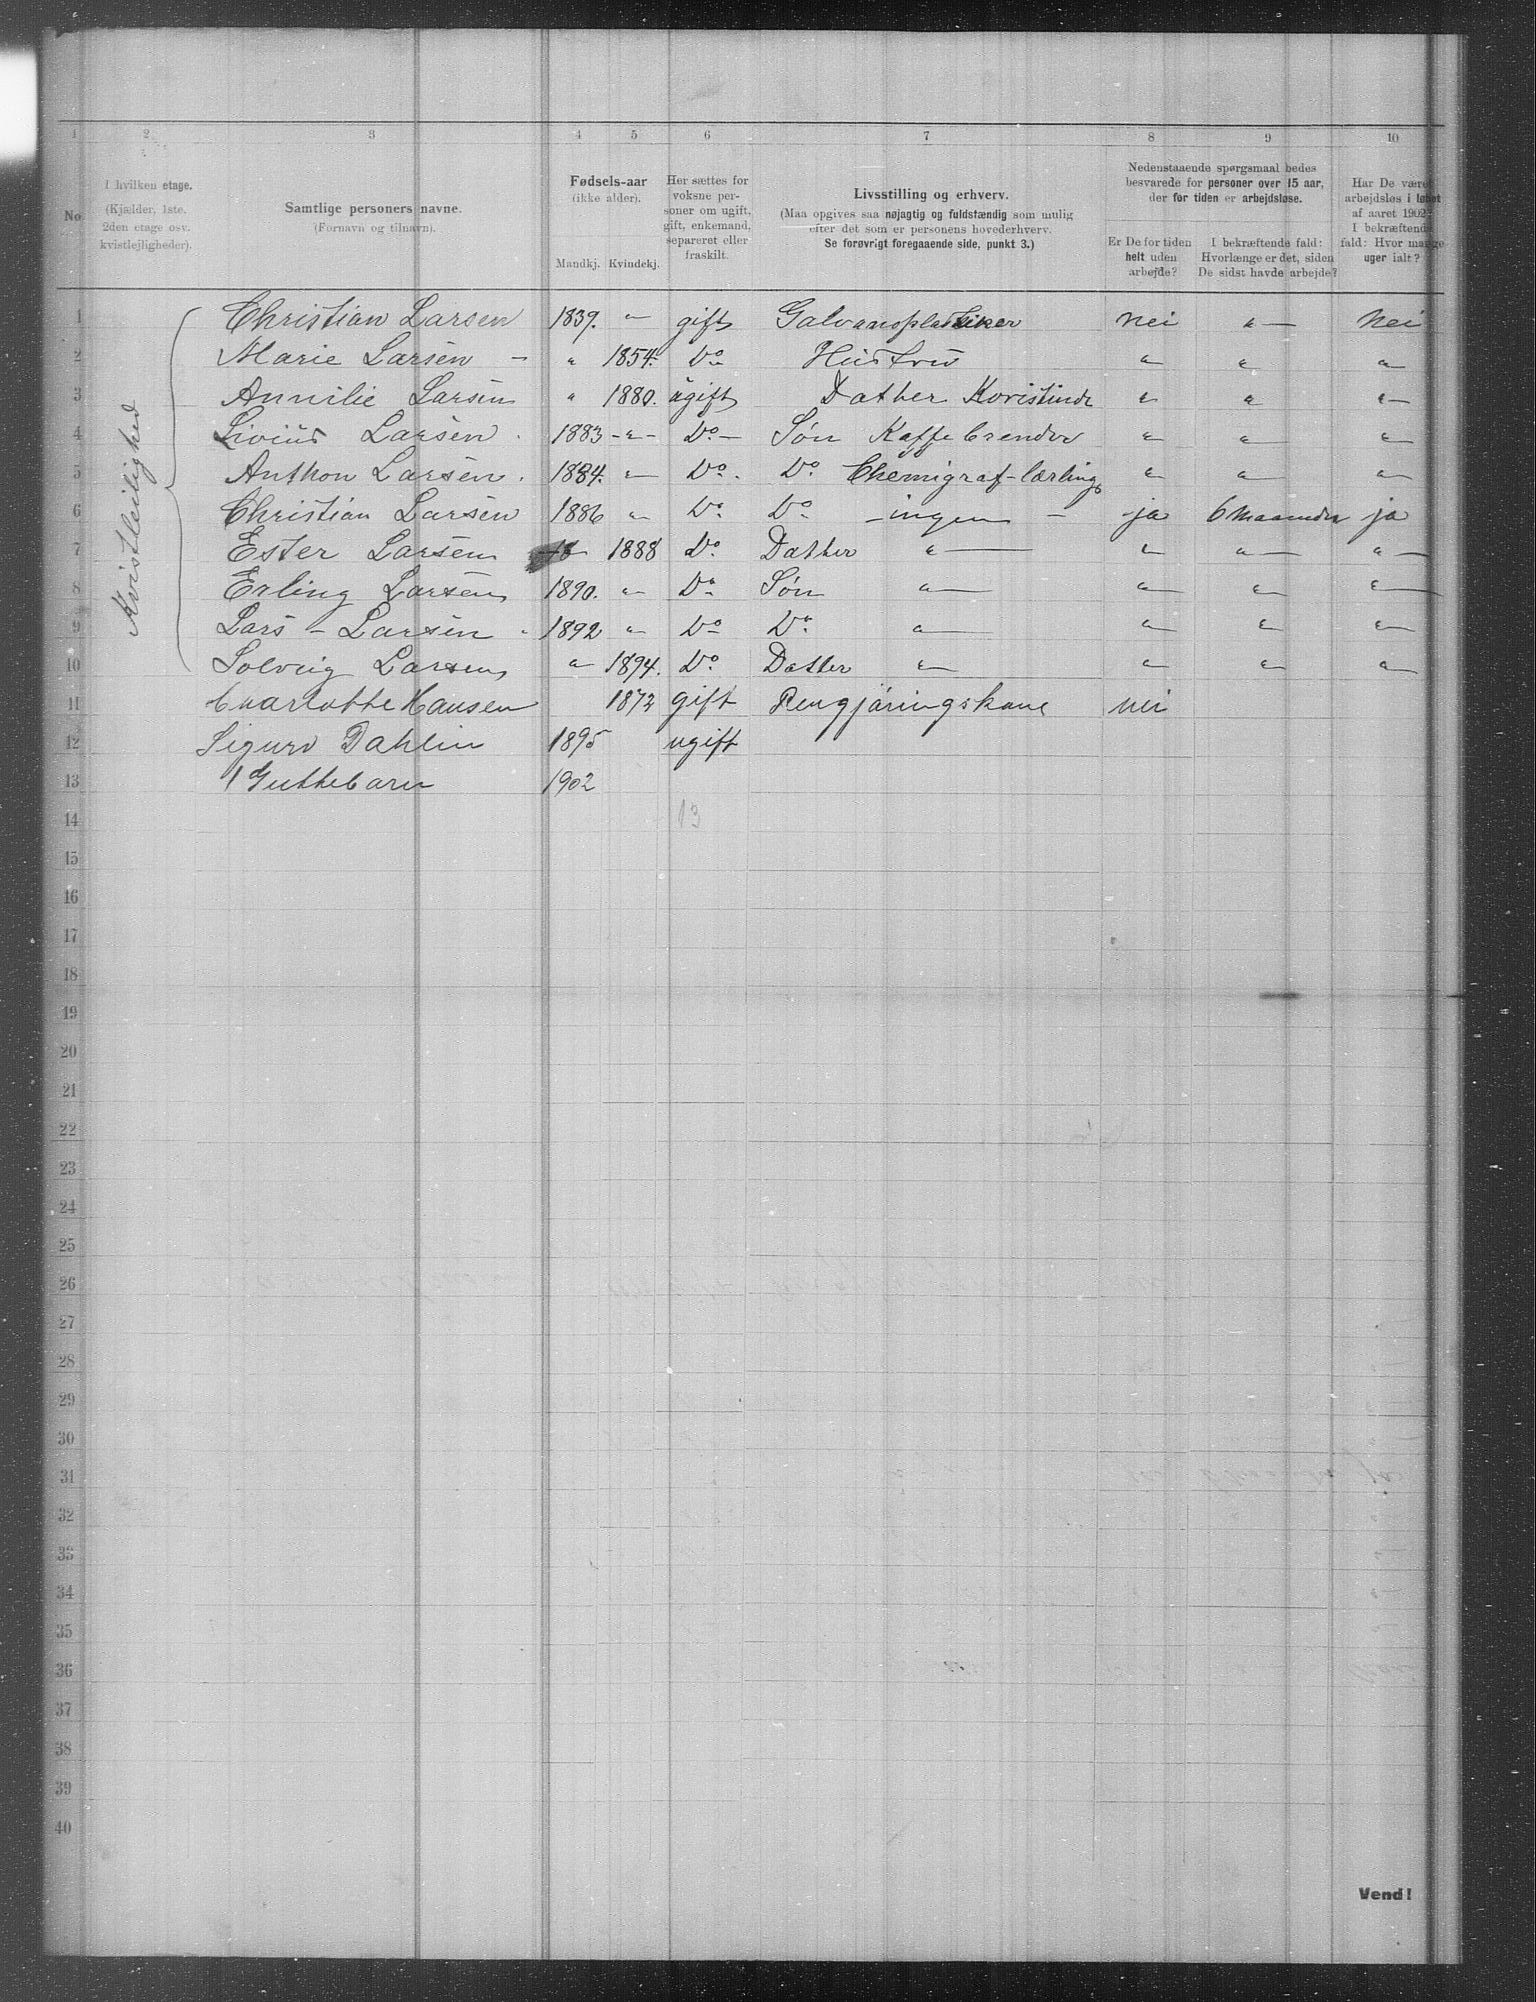 1 2 3 4 5 6 7 8 9 10
No
I hvilken etage.
(Kjælder, 1ste.
2den etage osv.
kvistlejligheder).
Samtlige personers navne.
(Fornavn og tilnavn).
Fødsels-aar
(ikke alder).
Mandkj. Kvindekj.
Her sættes for
voksne per-
soner om ugift,
gift, enkemand,
separeret eller
fraskilt.
Livsstilling og erhverv.
(Maa opgives saa nøjagtig og fuldstændig som mulig
efter det som er personens hovederhverv.
Se forøvrigt foregaaende side, punkt 3.)
Nedenstaaende spørgsmaal bedes
besvarede for personer over 15 aar,
der for tiden er arbejdsløse.
Er De for tiden
helt uden
arbejde?
I bekræftende fald:
Hvorlænge er det, siden
De sidst havde arbejde?
Har De været
arbejdsløs i løbet
af aaret 1902?
I bekræftende
fald: Hvor mange
uger ialt?
Kvistleilighed
1 Christian Larsen 1839. " gift Galvanoplastiker nei " nei
2 Marie Larsen - " 1854. Do Hustru " " "
3 Annilie Larsen " 1880. ugift Datter Koristinde " " "
4 Livius Larsen 1883 - " - Do - Søn Kaffebrender " " "
5 Anthon Larsen 1884. " Do. Do Chemigraf-lærling " " "
6 Christian Larsen 1886 " Do Do - ingen - ja 6 maaneder ja
7 Ester Larsen 1888 Do Datter " " " "
8 Erling Larsen 1890. " Do Søn " " " "
9 Lars - Larsen 1892 " Do Do " " " "
10 Solveig Larsen " 1894. Do Datter " " " "
11 Charlotte Hansen 1872 gift Rengjøringskone nei
12 Sigurd Dahlin 1895 ugift
13 1 Guttebarn 1902
14 13
15
16
17
18
19
20
21
22
23
24
25
26
27
28
29
30
31
32
33
34
35
36
37
38
39
40
Vend!